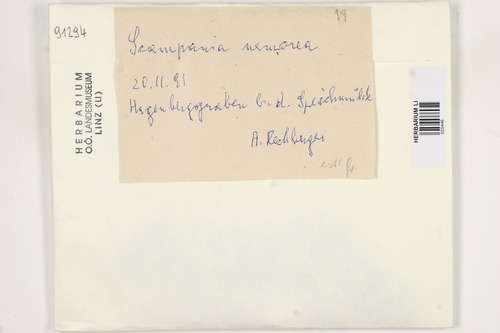 91294
HERBARIUM
O.Ö. LANDESMUSEUM
LINZ (LI)
Scampania nemorea
20.11.91
Hagenbergsgraben b. d. Speichmühle
A. Rechberger
HERBARIUM LI